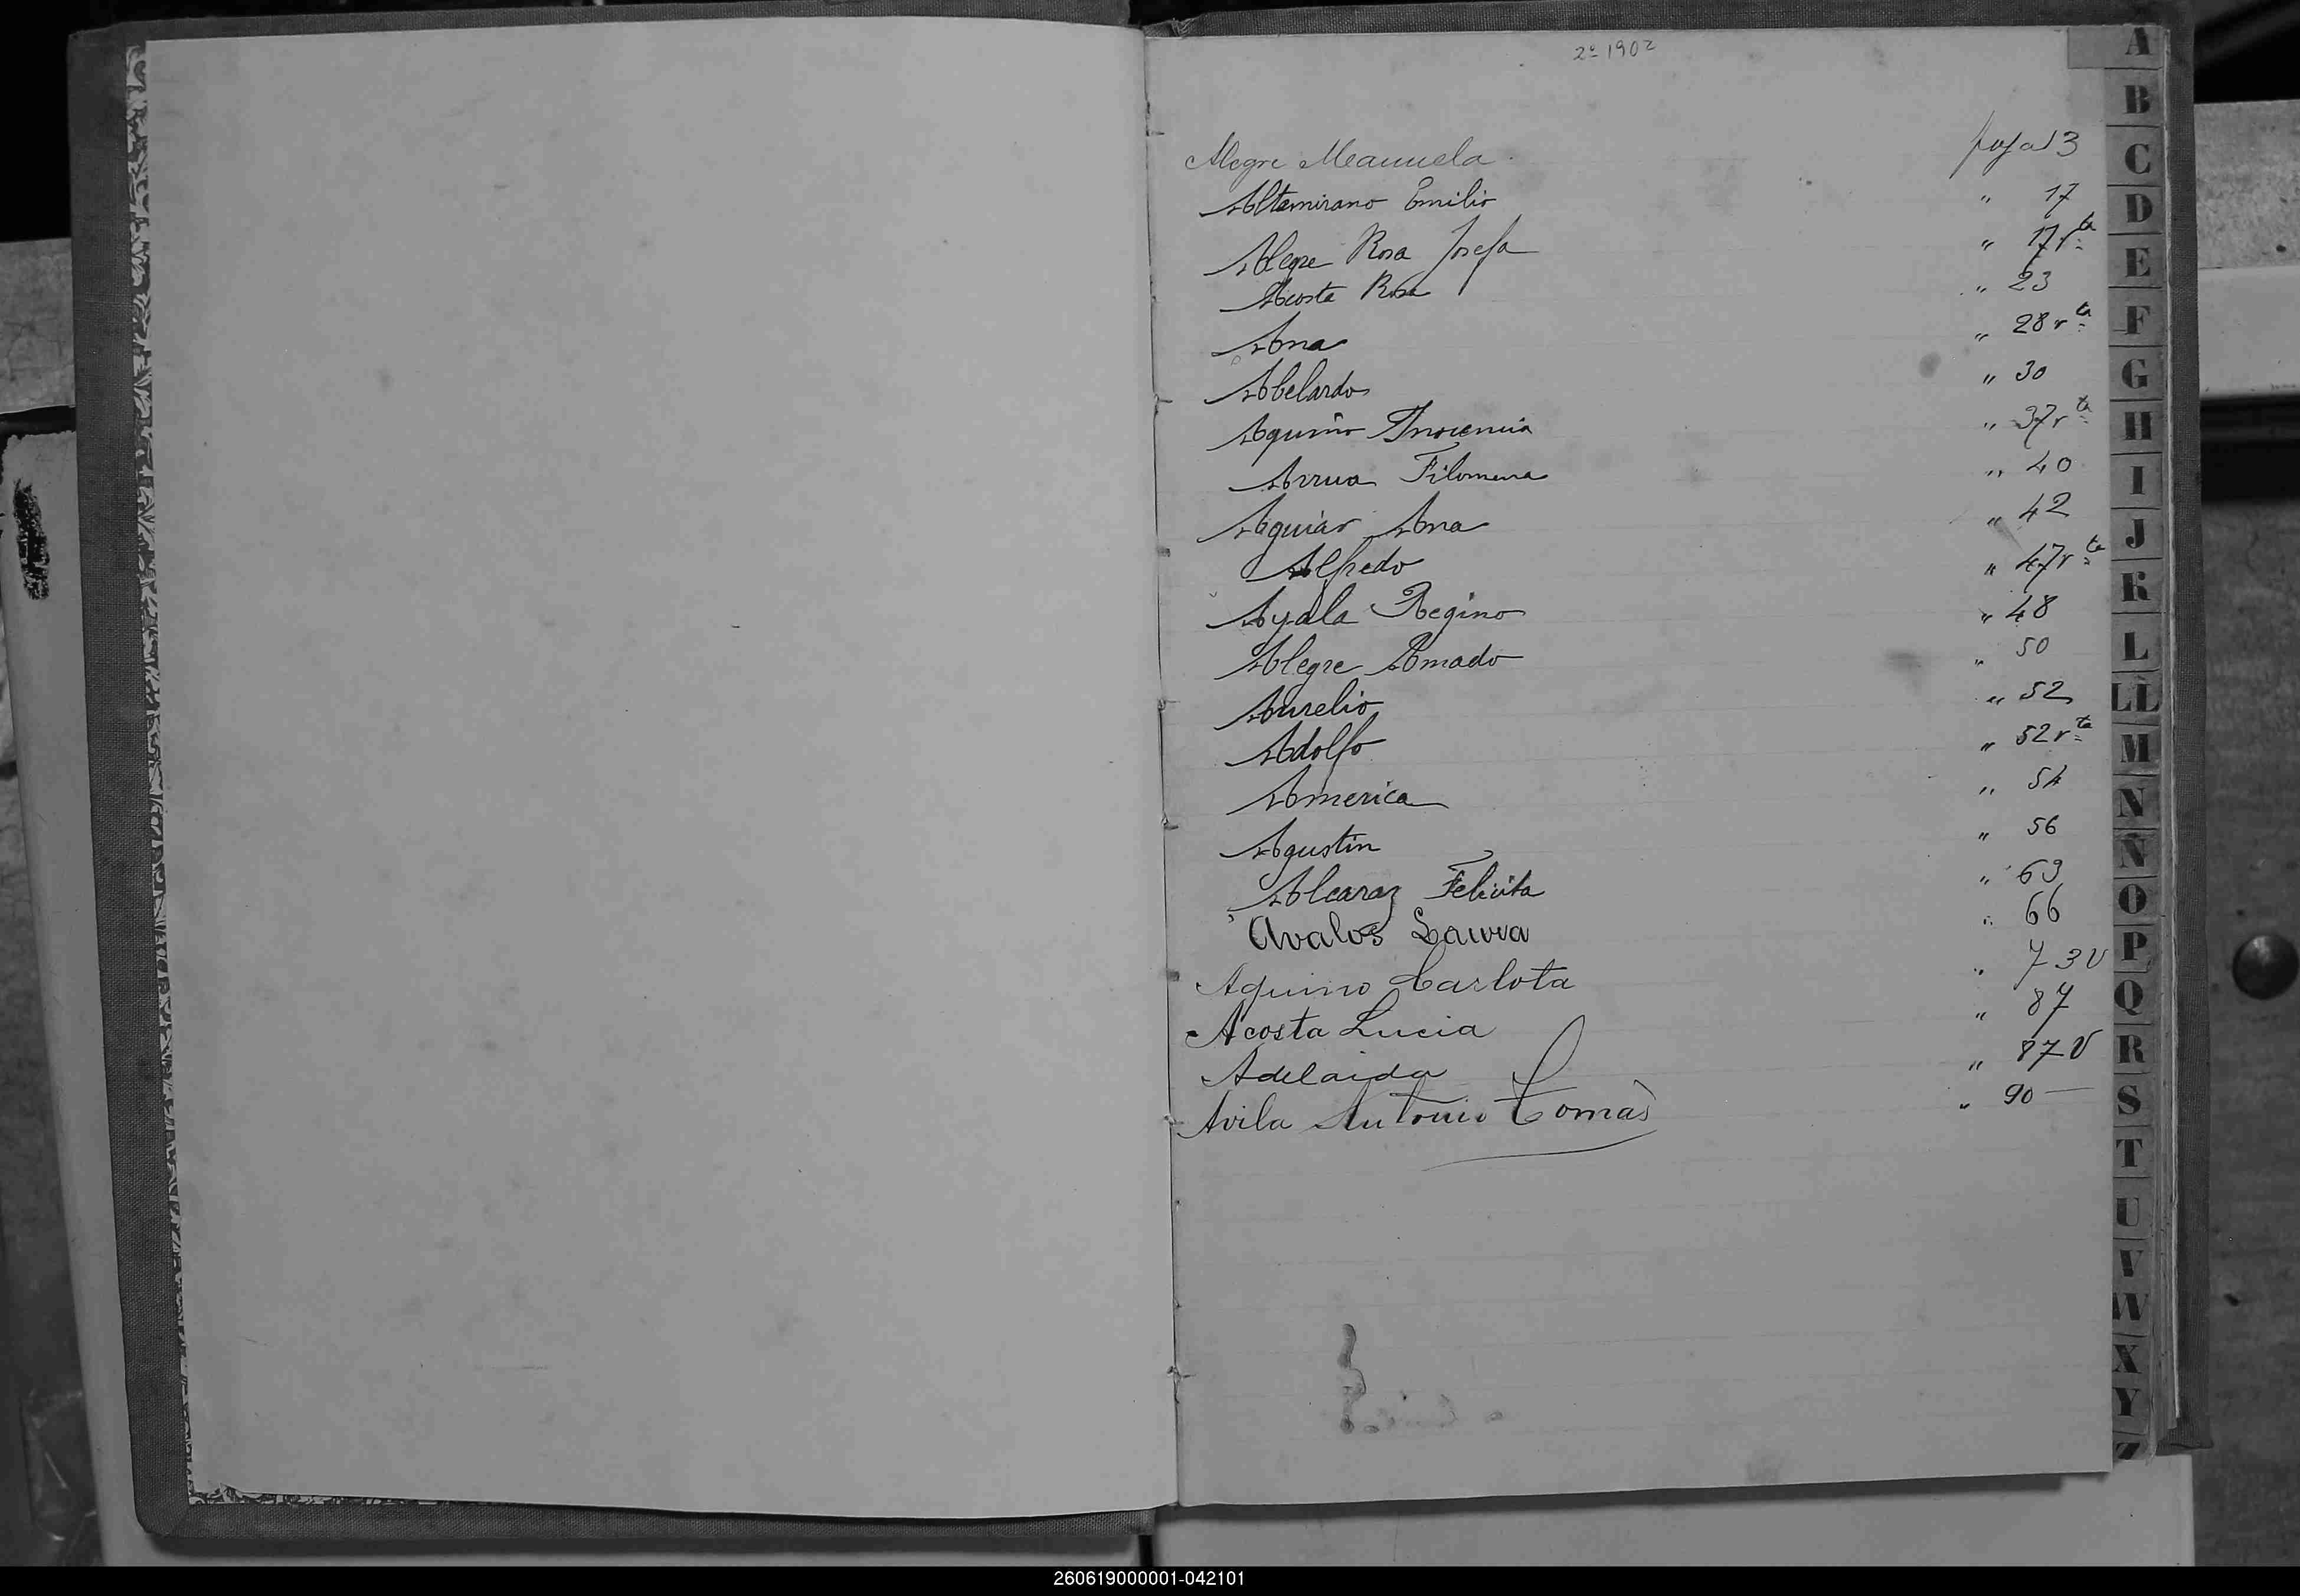 2º 1902
Alegre Manuela foja 13
Altamirano Emilio " 17
Alegre Rosa Josefa " 17 vta
Acosta Rosa " 23
Ana " 28 vta
Abelardo " 30
Aquino Inocencia " 37 vta
Arrua Filomena " 40
Aguiar Ana " 42
Alfredo " 47 vta
Ayala Regino " 48
Alegre Amado " 50
Aurelio " 52
Adolfo " 52 vta
America " 54
Agustin " 56
Alcaraz Felicita " 63
Avalos Laura " 66
Aquino Carlota " 73 V
Acosta Lucia " 87
Adelaida " 87 V
Avila Antonio Tomás " 90
A
B
C
D
E
F
G
H
I
J
K
L
LL
M
N
Ñ
O
P
Q
R
S
T
U
V
W
X
Y
Z
260619000001-042101